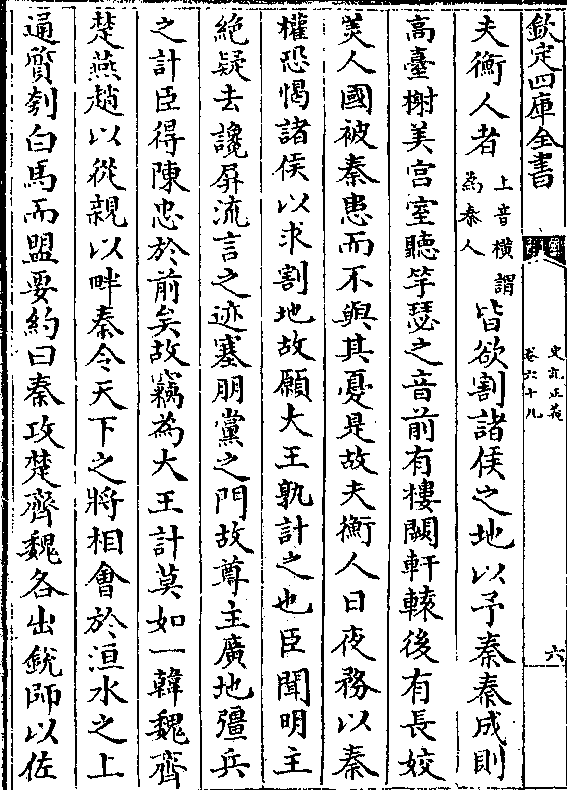 欽定四庫全書
史記正義
卷六十九
六
夫衡人者上音橫謂為秦人皆欲割諸侯之地以予秦秦成則
高臺榭美宫室聽竽瑟之音前有樓闕軒轅後有長姣
美人國被秦患而不與其憂是故夫衡人日夜務以秦
權恐愒諸侯以求割地故願大王孰計之也臣聞明主
絶疑去讒屏流言之迹塞朋黨之門故尊主廣地彊兵
之計臣得陳忠於前矣故竊為大王計莫如一韓魏齊
楚燕趙以從親以畔秦令天下之將相會於洹水之上
通質刳白馬而盟要約曰秦攻楚齊魏各出銳師以佐